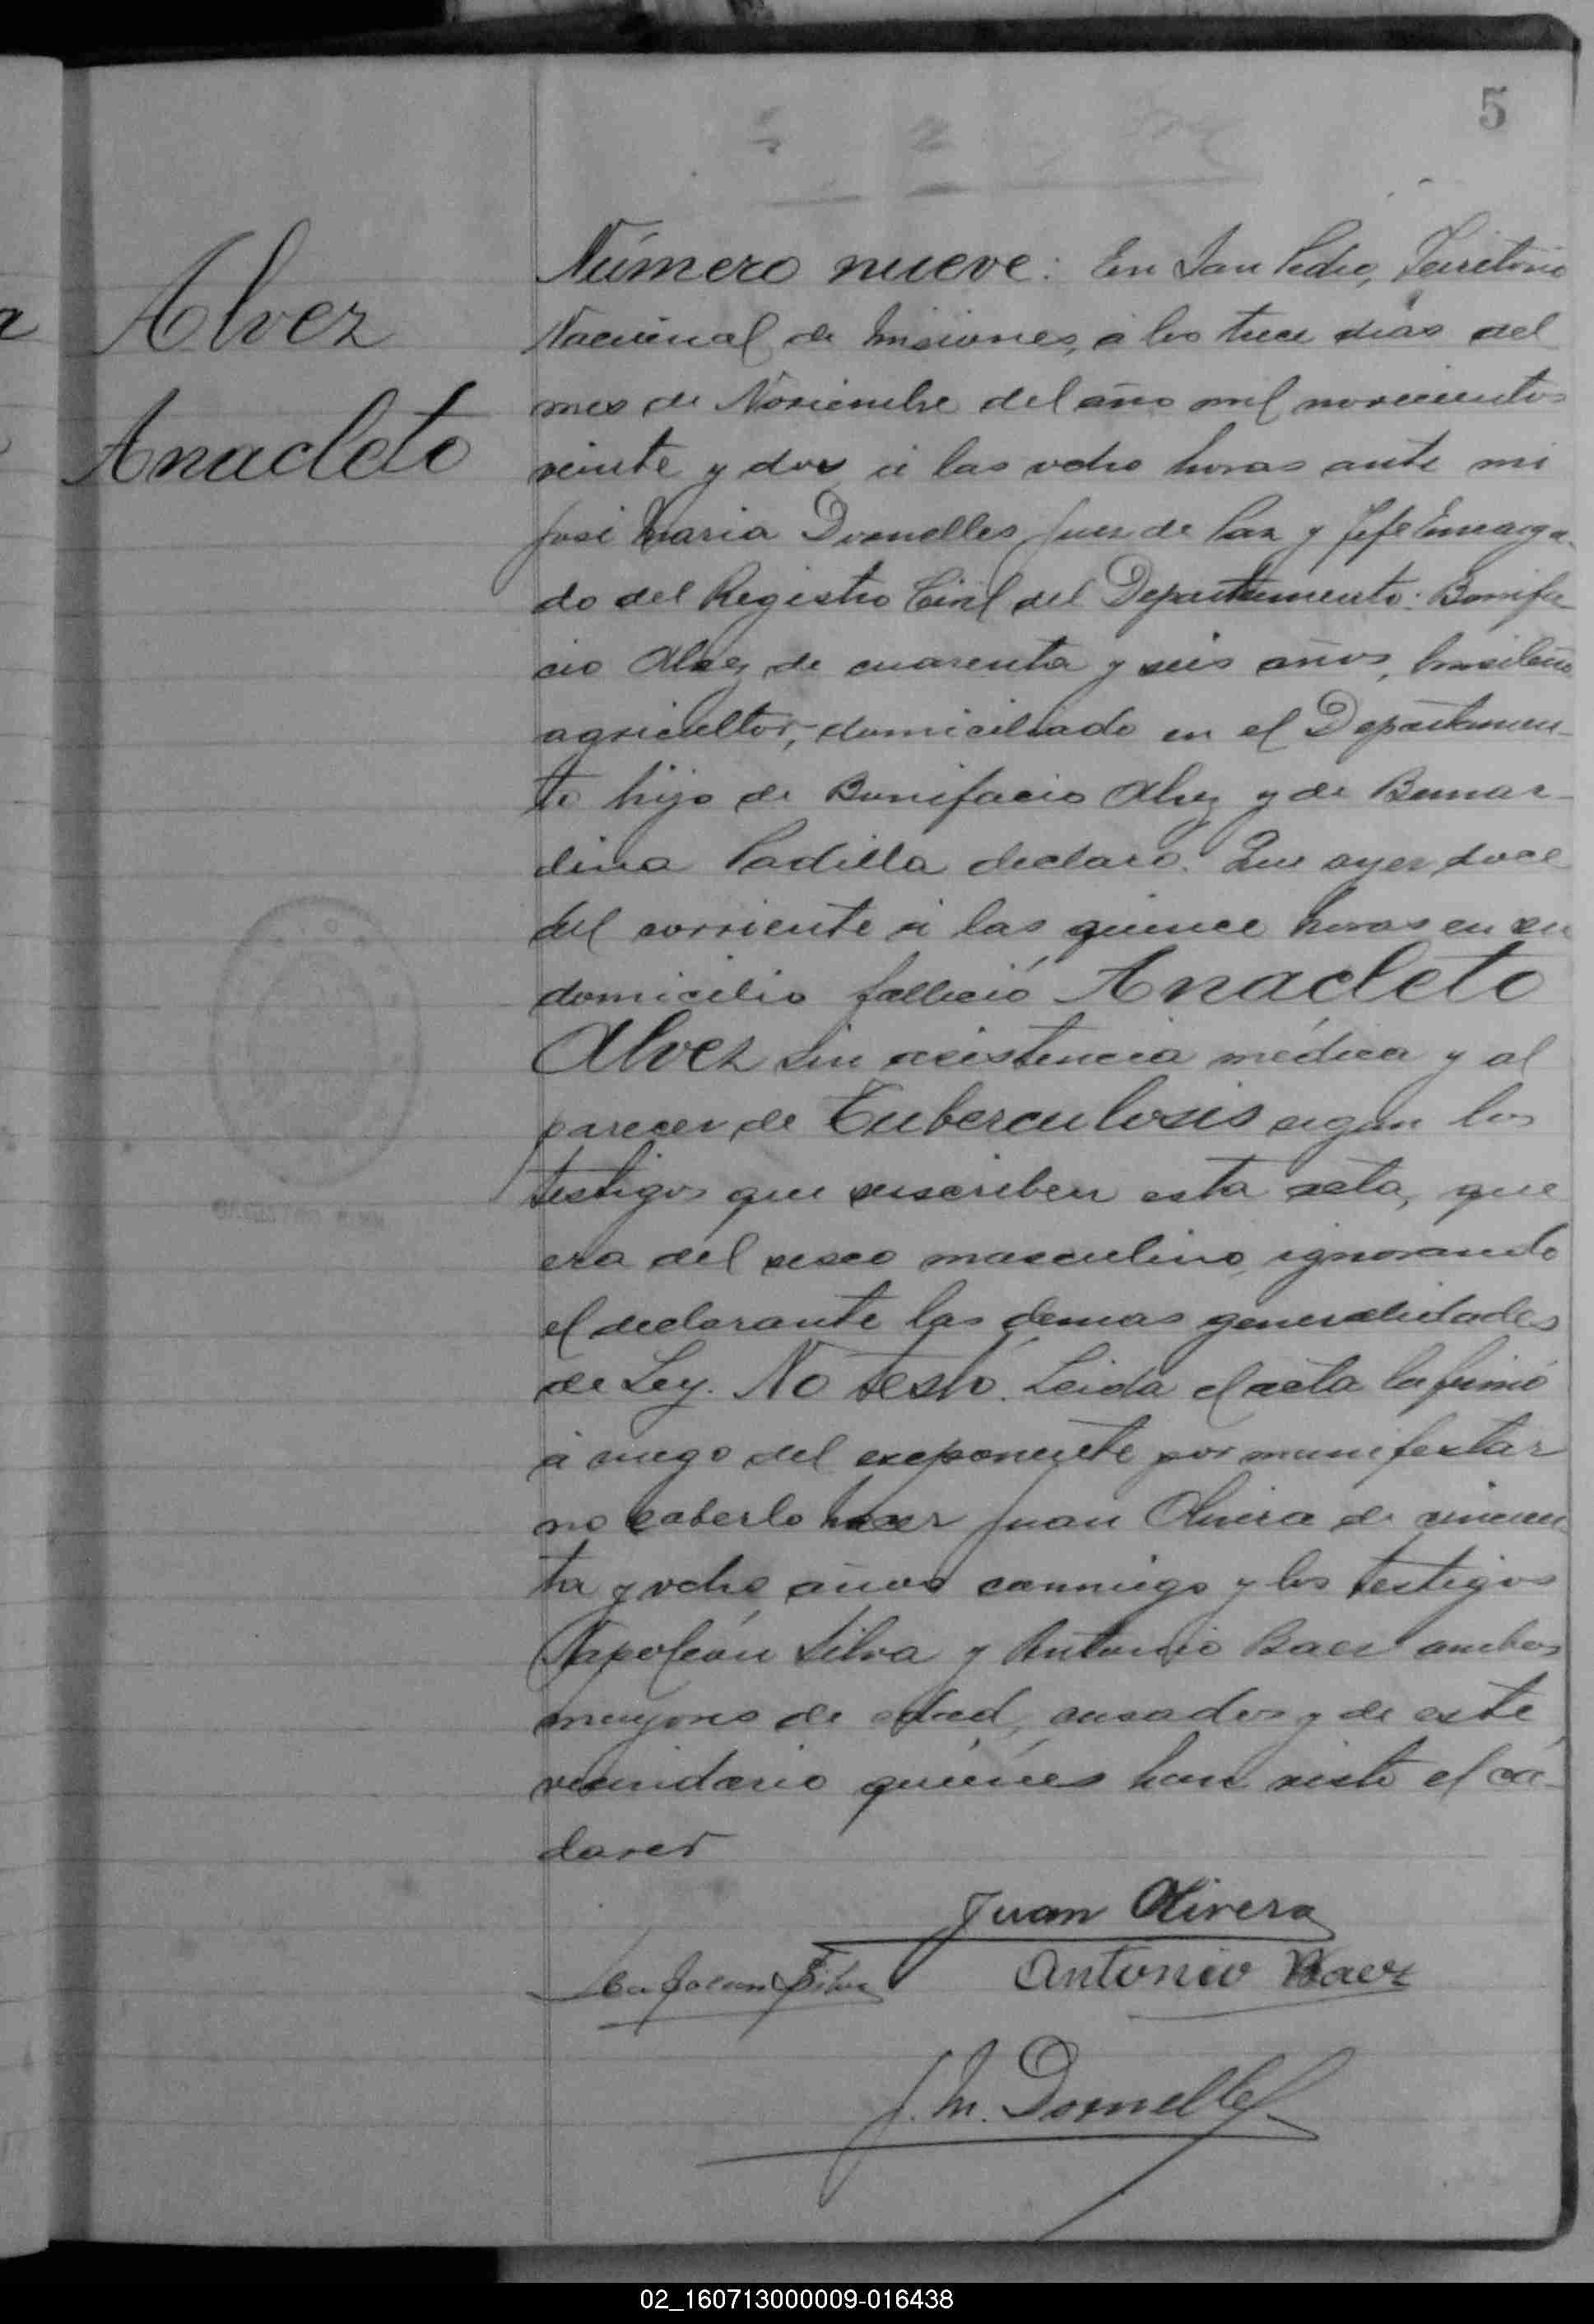 5
Alvez
Anacleto
Número nueve: En San Pedro, Territorio
Nacional de Misiones, á los trece dias del
mes de Noviembre del año mil novecientos
veinte y dos, á las ocho horas ante mi
José Maria Dornelles Juez de Paz y Jefe Encarga-
do del Registro Civil del Departamento: Bonifa-
cio Alvez de cuarenta y seis años, brasileño
agricultor, domiciliado en el Departamen-
to hijo de Bonifacio Alvez y de Bernar-
dina Padilla declaró: Que ayer doce
del corriente á las quince horas en su
domicilio falleció Anacleto
Alvez sin asistencia médica y al
parecer de Tuberculosis segun los
testigos que suscriben esta acta, que
era del sexo masculino, ignorando
el declarante las demas generalidades
de Ley. No testó. Leida el acta la firmó
á ruego del exponente por manifestar
no saberlo hacer Juan Olivera de cincuen
ta y ocho años conmigo y los testigos
Napoleón Silva y Antonio Baez ambos
mayores de edad, casados y de este
vecindario quiénes han visto el cá-
daver
Juan Olivera
Napoleon Silva Antonio Baez
J. M. Dornelles
02_160713000009-016438